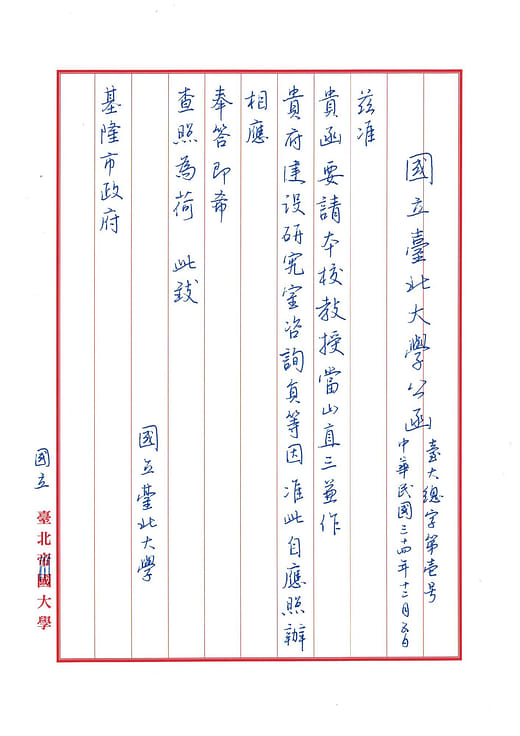 國立臺北大學公函
臺大總字第壹号
中華民國三十四年十二月五日
茲准
貴函要請本校教授當山直三兼作
貴府建设研究室咨詢員等因准此自應照辦
相應
奉答即希
查照為荷 此致
國立臺北大學
基隆市政府
國立臺北帝國大學